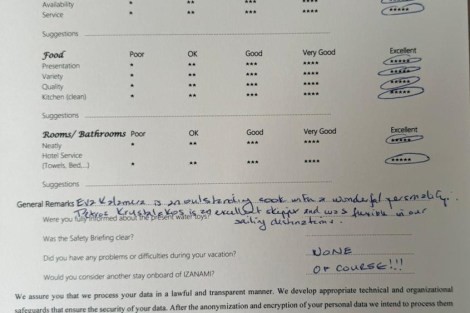 Availability * ** *** **** *****
Service * ** *** **** *****
Suggestions
Food Poor OK Good Very Good Excellent
Presentation * ** *** **** *****
Variety * ** *** **** *****
Quality * ** *** **** *****
Kitchen (clean) * ** *** **** *****
Suggestions
Rooms/ Bathrooms Poor OK Good Very Good Excellent
Neatly * ** *** **** *****
Hotel Service
(Towels, Bed,...) * ** *** **** *****
Suggestions
General Remarks Eva Kalamera is an outstanding cook with a wonderful personality.
Petros Krystalakos is an excellent skipper and was flexible in our
Were you fully informed about the present water toys?
sailing destinations.
Was the Safety Briefing clear?
Did you have any problems or difficulties during your vacation? NONE
Would you consider another stay onboard of IZANAMI? OF COURSE!!!
We assure you that we process your data in a lawful and transparent manner. We develop appropriate technical and organizational
safeguards that ensure the security of your data. After the anonymization and encryption of your personal data we intend to process them